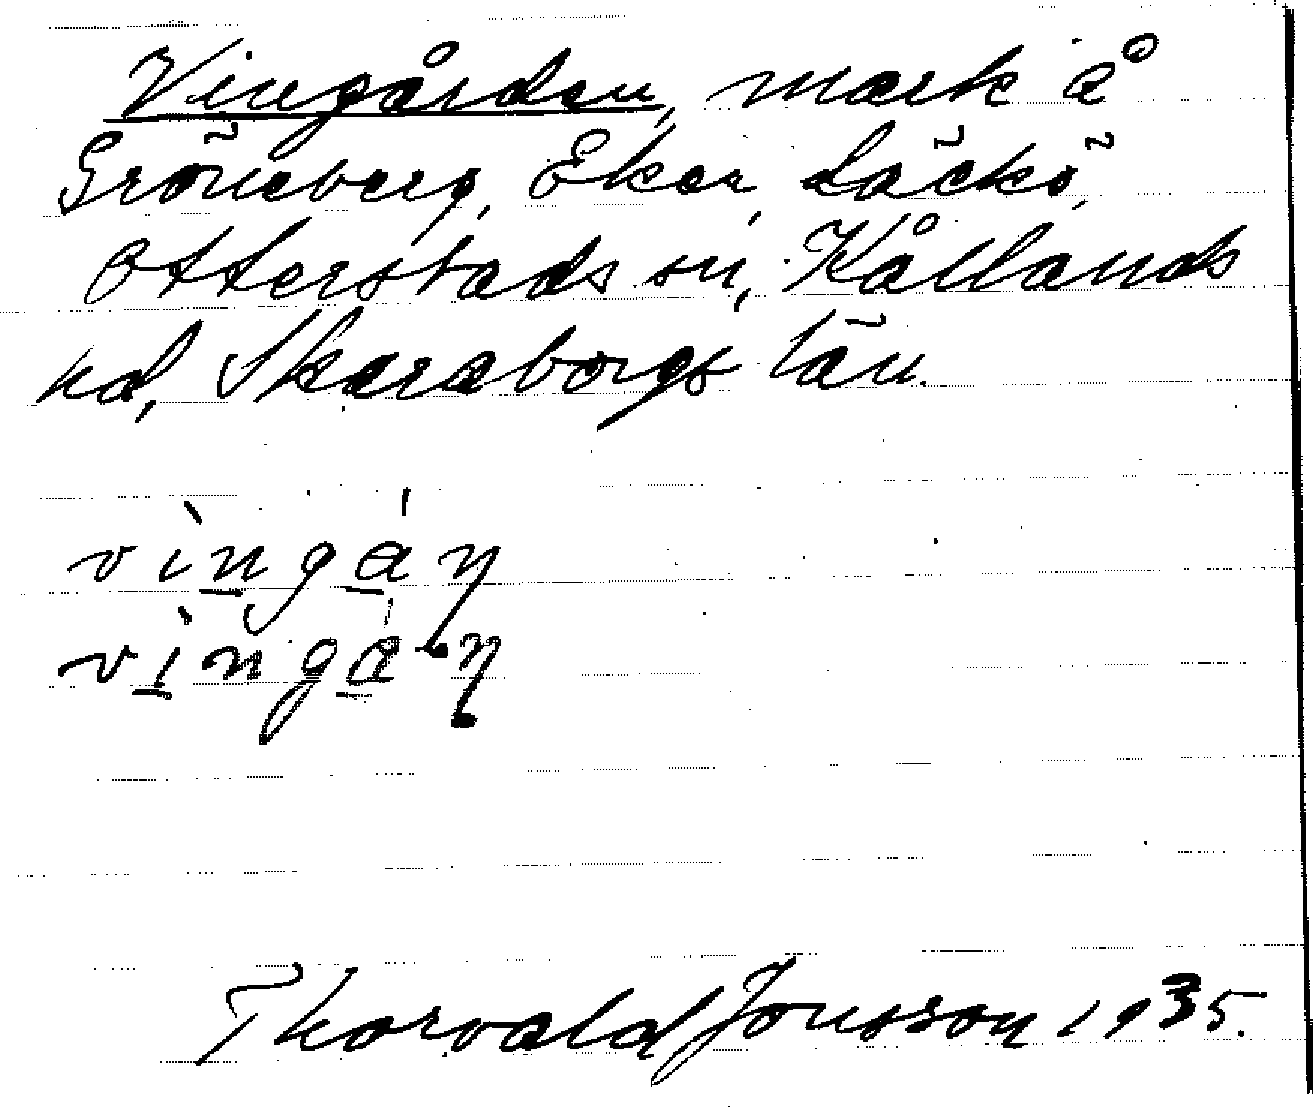 Vingården, mark å
Gröneberg, Eker, Läckö,
Otterstads sn, Kållands
hd, Skaraborgs län.
vìngáŋ
vìngáŋ
Thorvald Jonsson 1935.